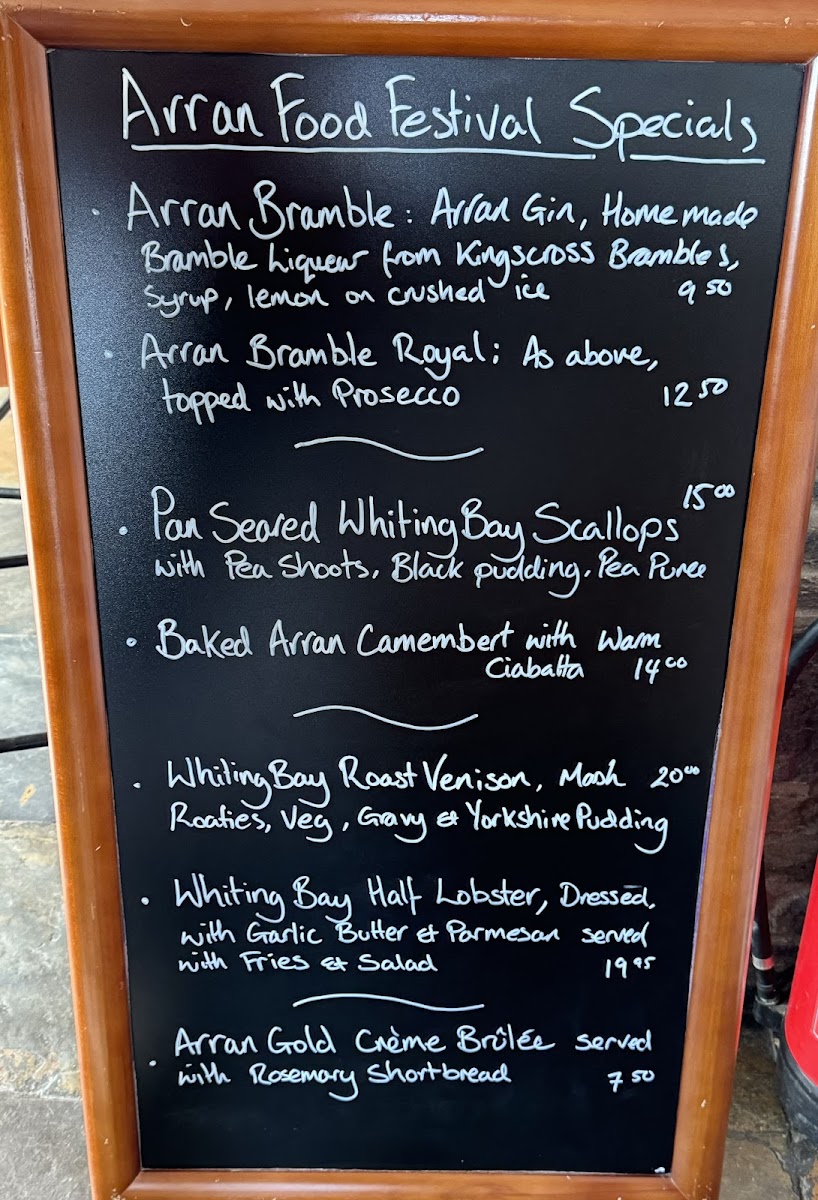 Arran Food Festival Specials
· Arran Bramble: Arran Gin, Homemade
Bramble Liqueur from Kingscross Brambles,
Syrup, lemon on crushed ice 9 50
· Arran Bramble Royal: As above,
topped with Prosecco 12 50
15 00
· Pan Seared Whiting Bay Scallops
with Pea Shoots, Black pudding, Pea Puree
· Baked Arran Camembert with Warm
Ciabatta 14 00
· Whiting Bay Roast Venison, Mash 20 00
Roasties, Veg, Gravy & Yorkshire Pudding
· Whiting Bay Half Lobster, Dressed,
with Garlic Butter & Parmesan served
with Fries & Salad 19 95
Arran Gold Crème Brûlée served
· with Rosemary Shortbread 7 50